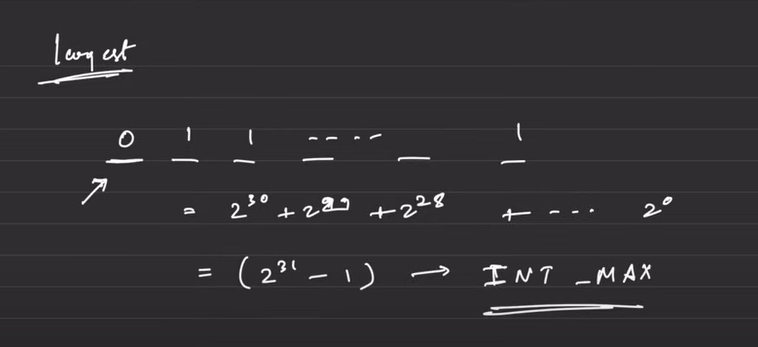 largest
0 1 1 ----.. 1
= 2^30 + 2^29 + 2^28 + --- 2^0
= (2^31 - 1) → INT_MAX